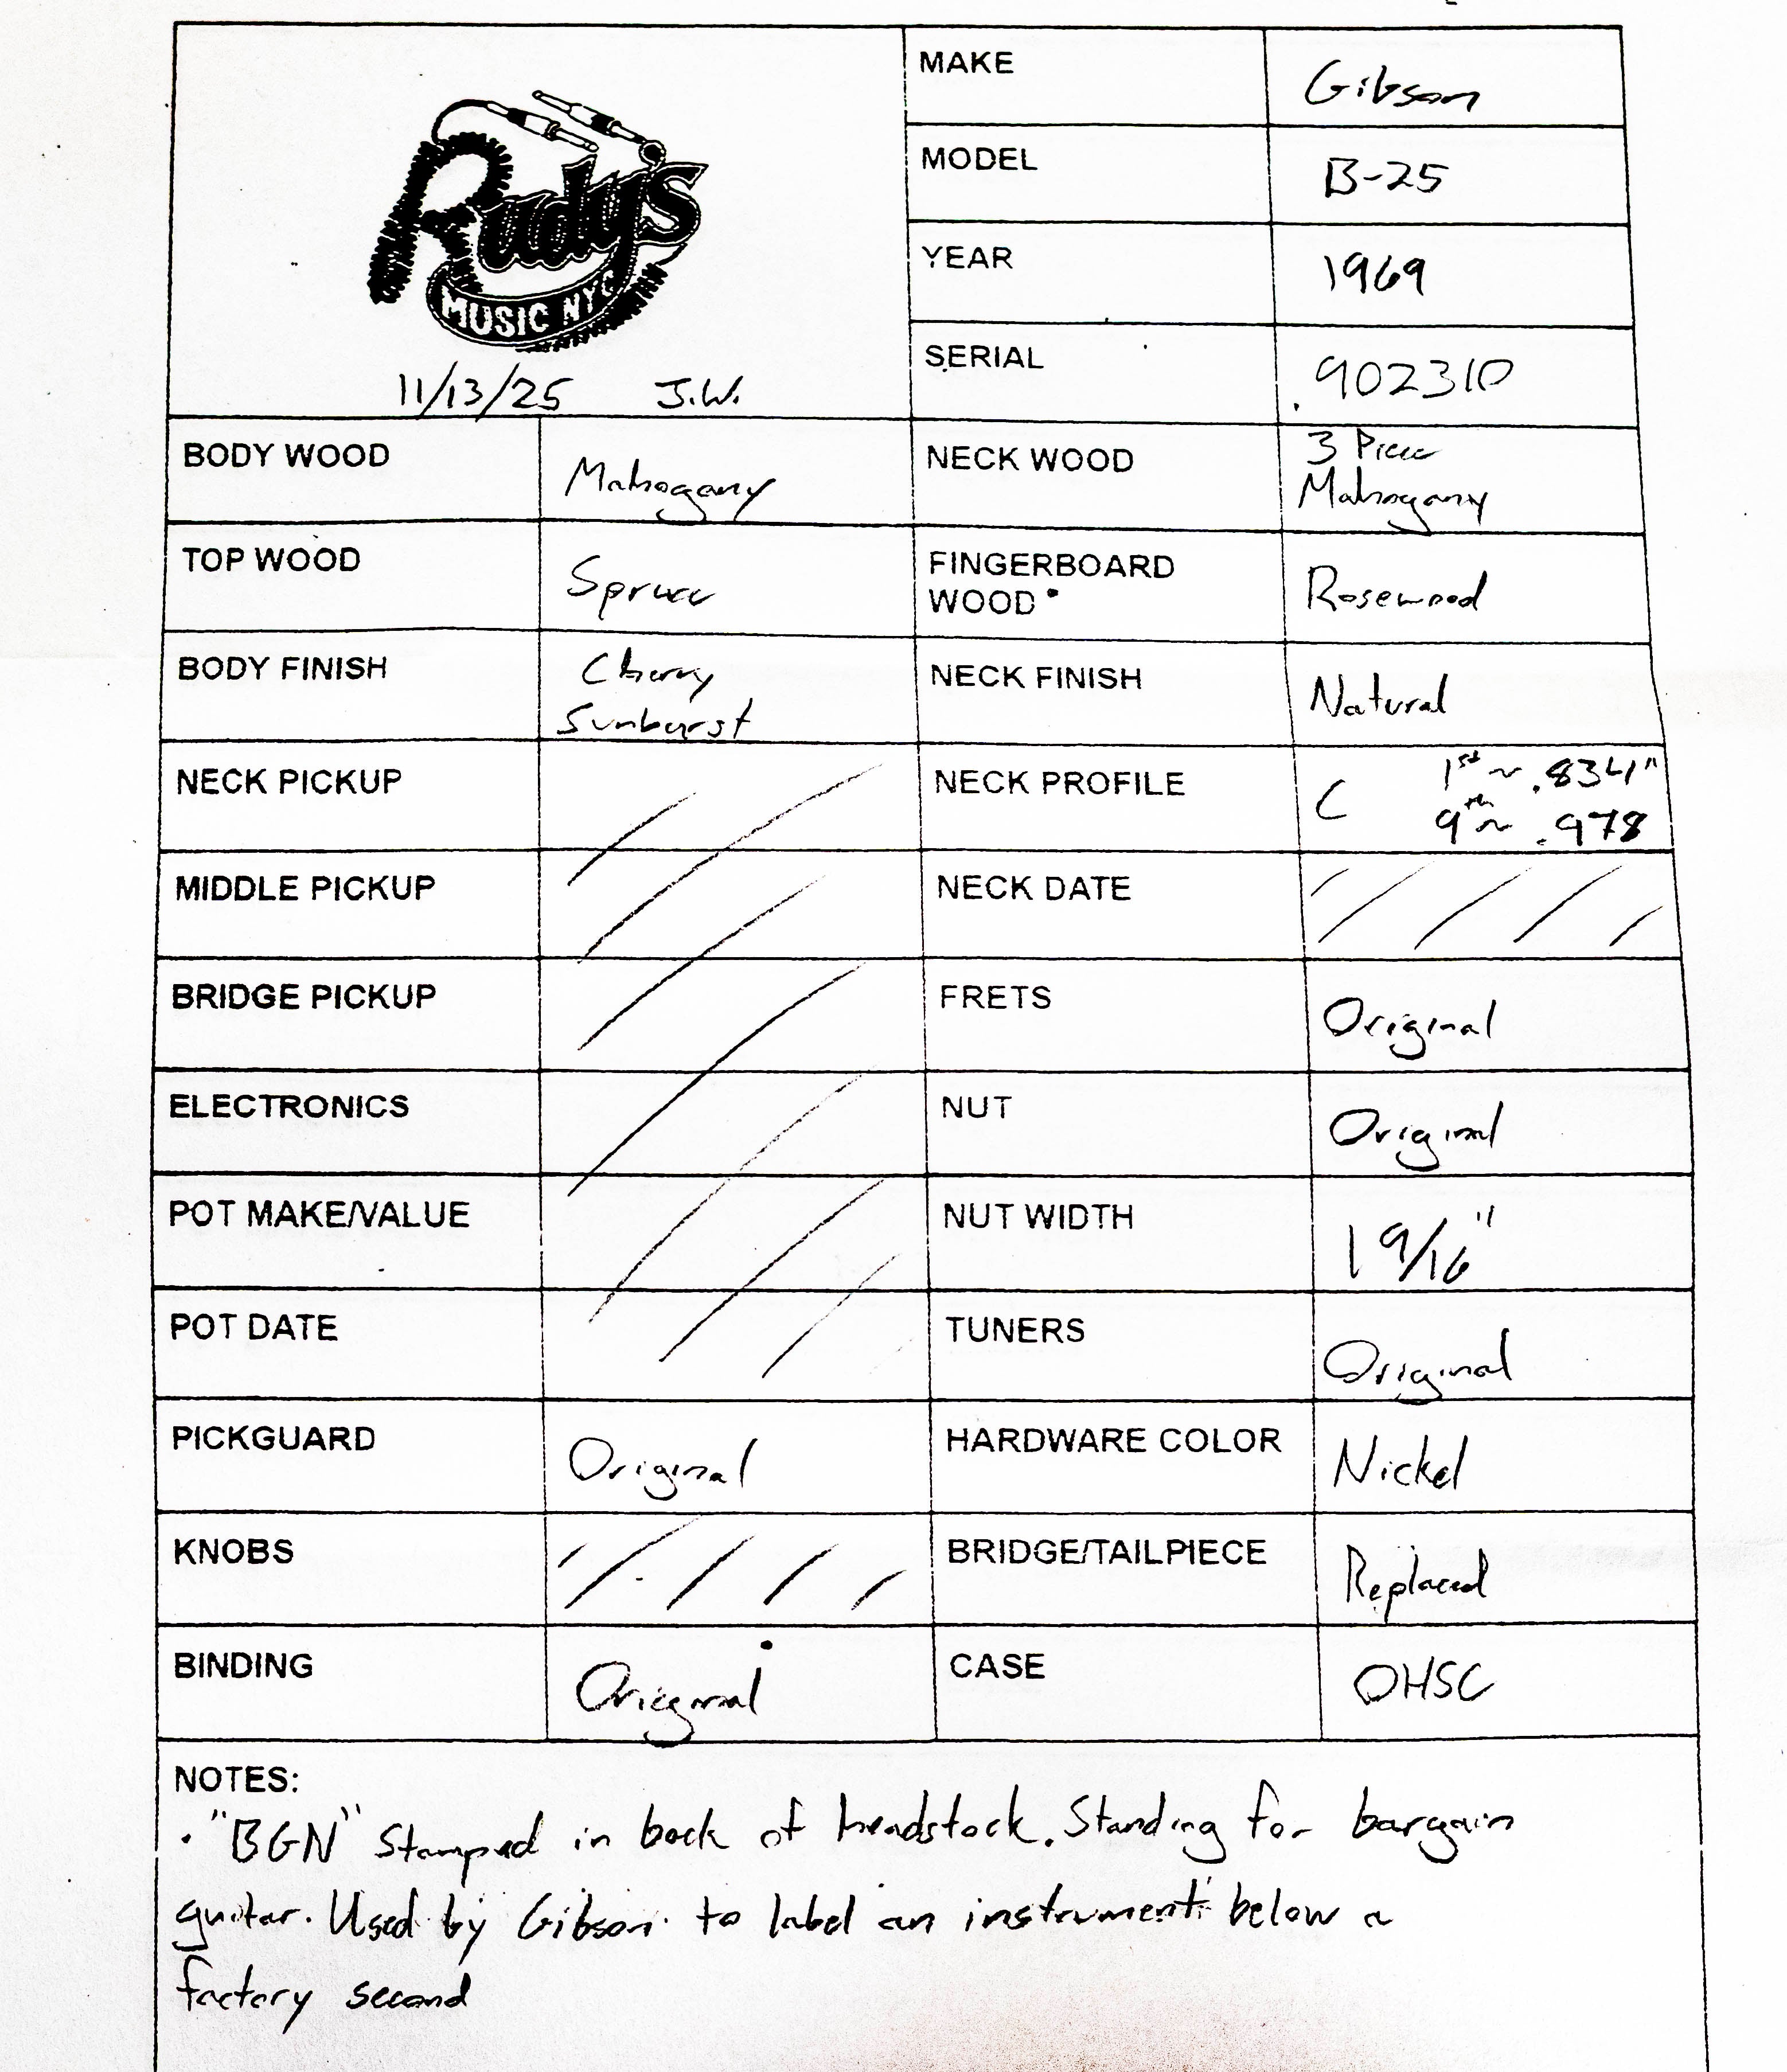 Rudy's
MUSIC NYC
11/13/25 J.W.
MAKE Gibson
MODEL B-25
YEAR 1969
SERIAL 902310
BODY WOOD Mahogany
NECK WOOD 3 Piece
Mahogany
TOP WOOD Spruce
FINGERBOARD
WOOD Rosewood
BODY FINISH Cherry
Sunburst
NECK FINISH Natural
NECK PICKUP
NECK PROFILE C 1st ~ .834"
9th ~ .978
MIDDLE PICKUP
NECK DATE
BRIDGE PICKUP
FRETS Original
ELECTRONICS
NUT Original
POT MAKE/VALUE
NUT WIDTH 1 9/16"
POT DATE
TUNERS Original
PICKGUARD Original
HARDWARE COLOR Nickel
KNOBS
BRIDGE/TAILPIECE Replaced
BINDING Original
CASE OHSC
NOTES:
· "BGN" Stamped in back of headstock. Standing for bargain
guitar. Used by Gibson to label an instrument below a
factory second